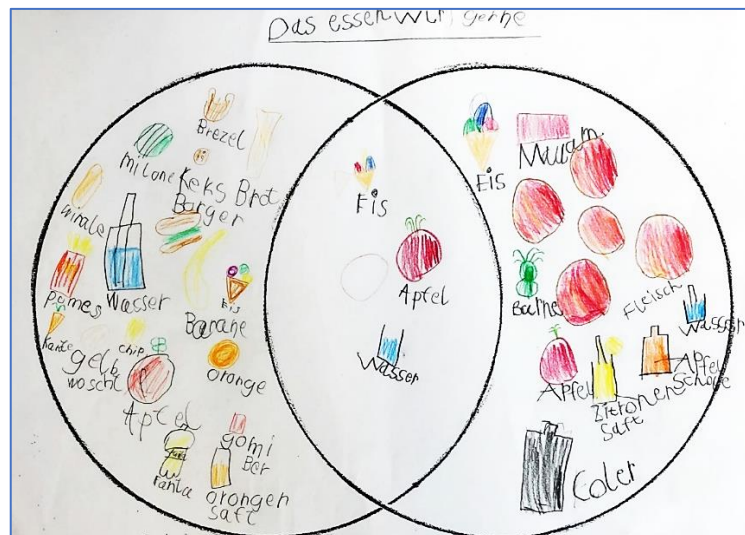 Das essen wir gerne
Brezel
Milone
Keks
Brot
Barger
Wasser
Pomes
Eis
Banane
chip
gelb
woschl
orange
Apfel
gomi
Ber
Fanta
orangen
saft
Eis
Apfel
Wasser
Eis
Fleisch
Wasser
Apfel
Zitronen
saft
Apfel
Schole
Coler